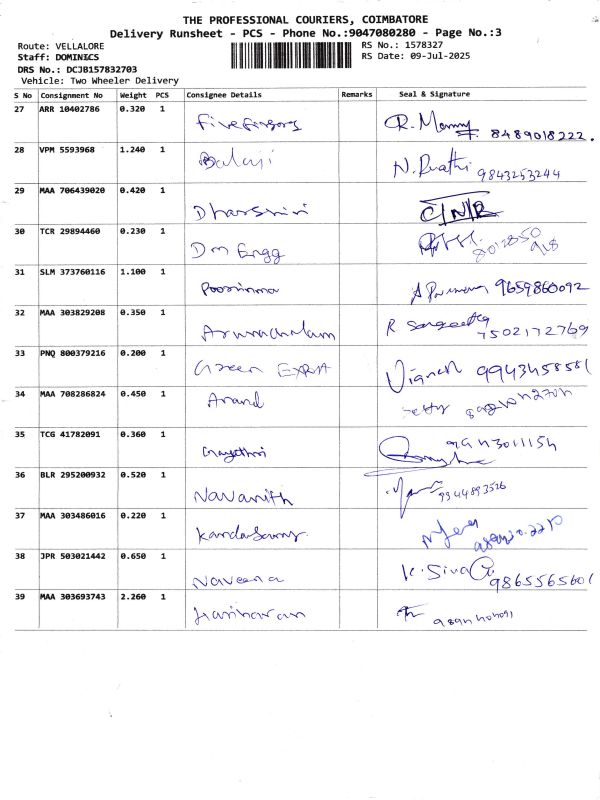 THE PROFESSIONAL COURIERS, COIMBATORE
Delivery Runsheet - PCS - Phone No.:9047080280 - Page No.:3
Route: VELLALORE
RS No.: 1578327
Staff: DOMINICS
RS Date: 09-Jul-2025
DRS No.: DCJB157832703
Vehicle: Two Wheeler Delivery
S No Consignment No Weight PCS Consignee Details Remarks Seal & Signature
27 ARR 10402786 0.320 1 R. 8489018222.
28 VPM 5593968 1.240 1 Balaji N. 9843253244
29 MAA 706439020 0.420 1 Dharshini
30 TCR 29894460 0.230 1 Dm Engg
31 SLM 373760116 1.100 1 Poornima 9659860092
32 MAA 303829208 0.350 1 Arunachalam R Sangeetha
7502172769
33 PNQ 800379216 0.200 1 Green Vignesh 9943458581
34 MAA 708286824 0.450 1 Anand
35 TCG 41782091 0.360 1 Gayathri
36 BLR 295200932 0.520 1 Navanith 9344893526
37 MAA 303486016 0.220 1 Kandasamy
38 JPR 503021442 0.650 1 Naveena K. Siva
9865565601
39 MAA 303693743 2.260 1 Hariharan